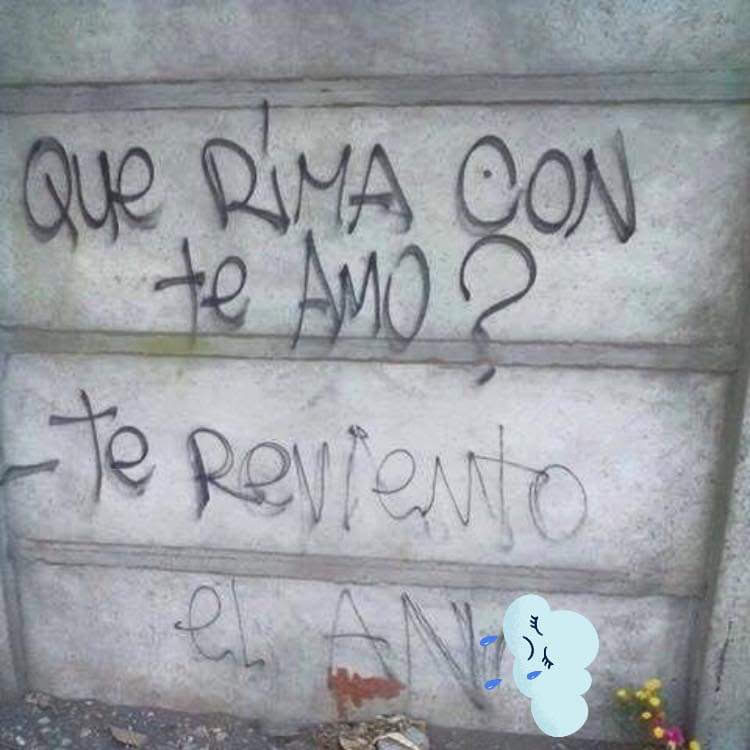 QUE RiMA CON
te AMO?
- te Reviento
eL